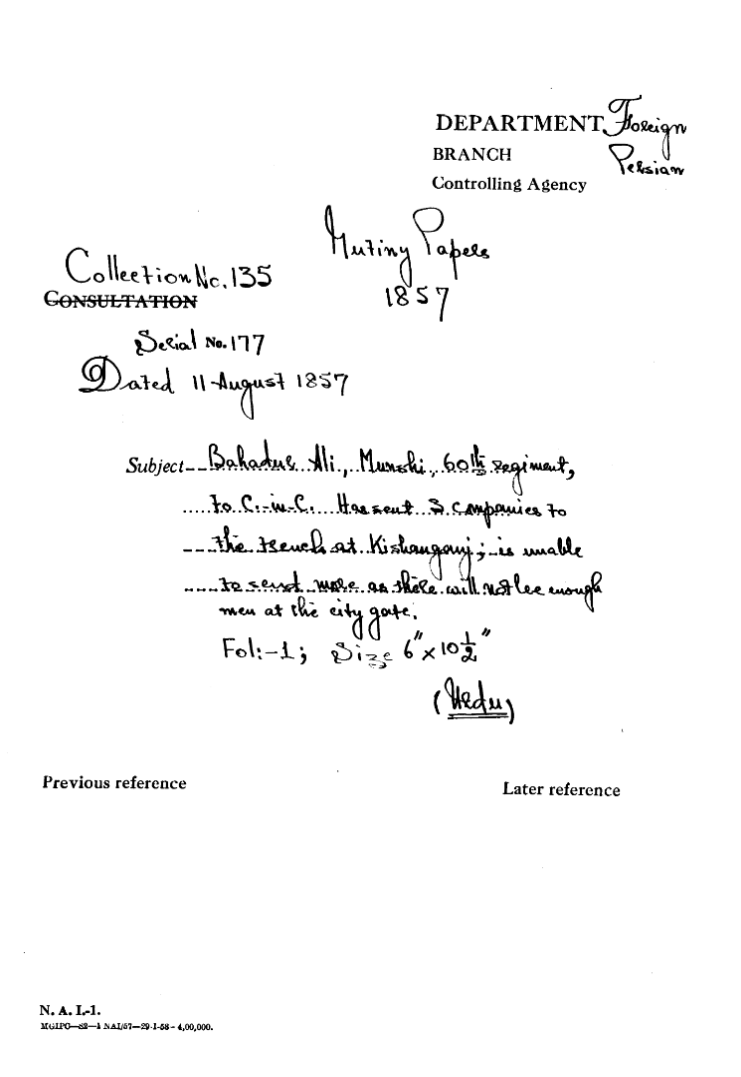 DEPARTMENT Foreign
BRANCH Persian
Controlling Agency
Mutiny Papers
1857
Collection No. 135
CONSULTATION
Serial No. 177
Dated 11 August 1857
Subject Bahadur Ali, Munshi, 60th regiment,
to C.-in-C. Has sent 3 companies to
the trench at Kishanganj; is unable
to send more as there will not be enough
men at the city gate.
Fol:-1; Size 6" x 10 1/2"
(Urdu)
Previous reference
Later reference
N. A. I.-1.
MGIPC—S2—1 NAI/57—29-1-58 - 4,00,000.